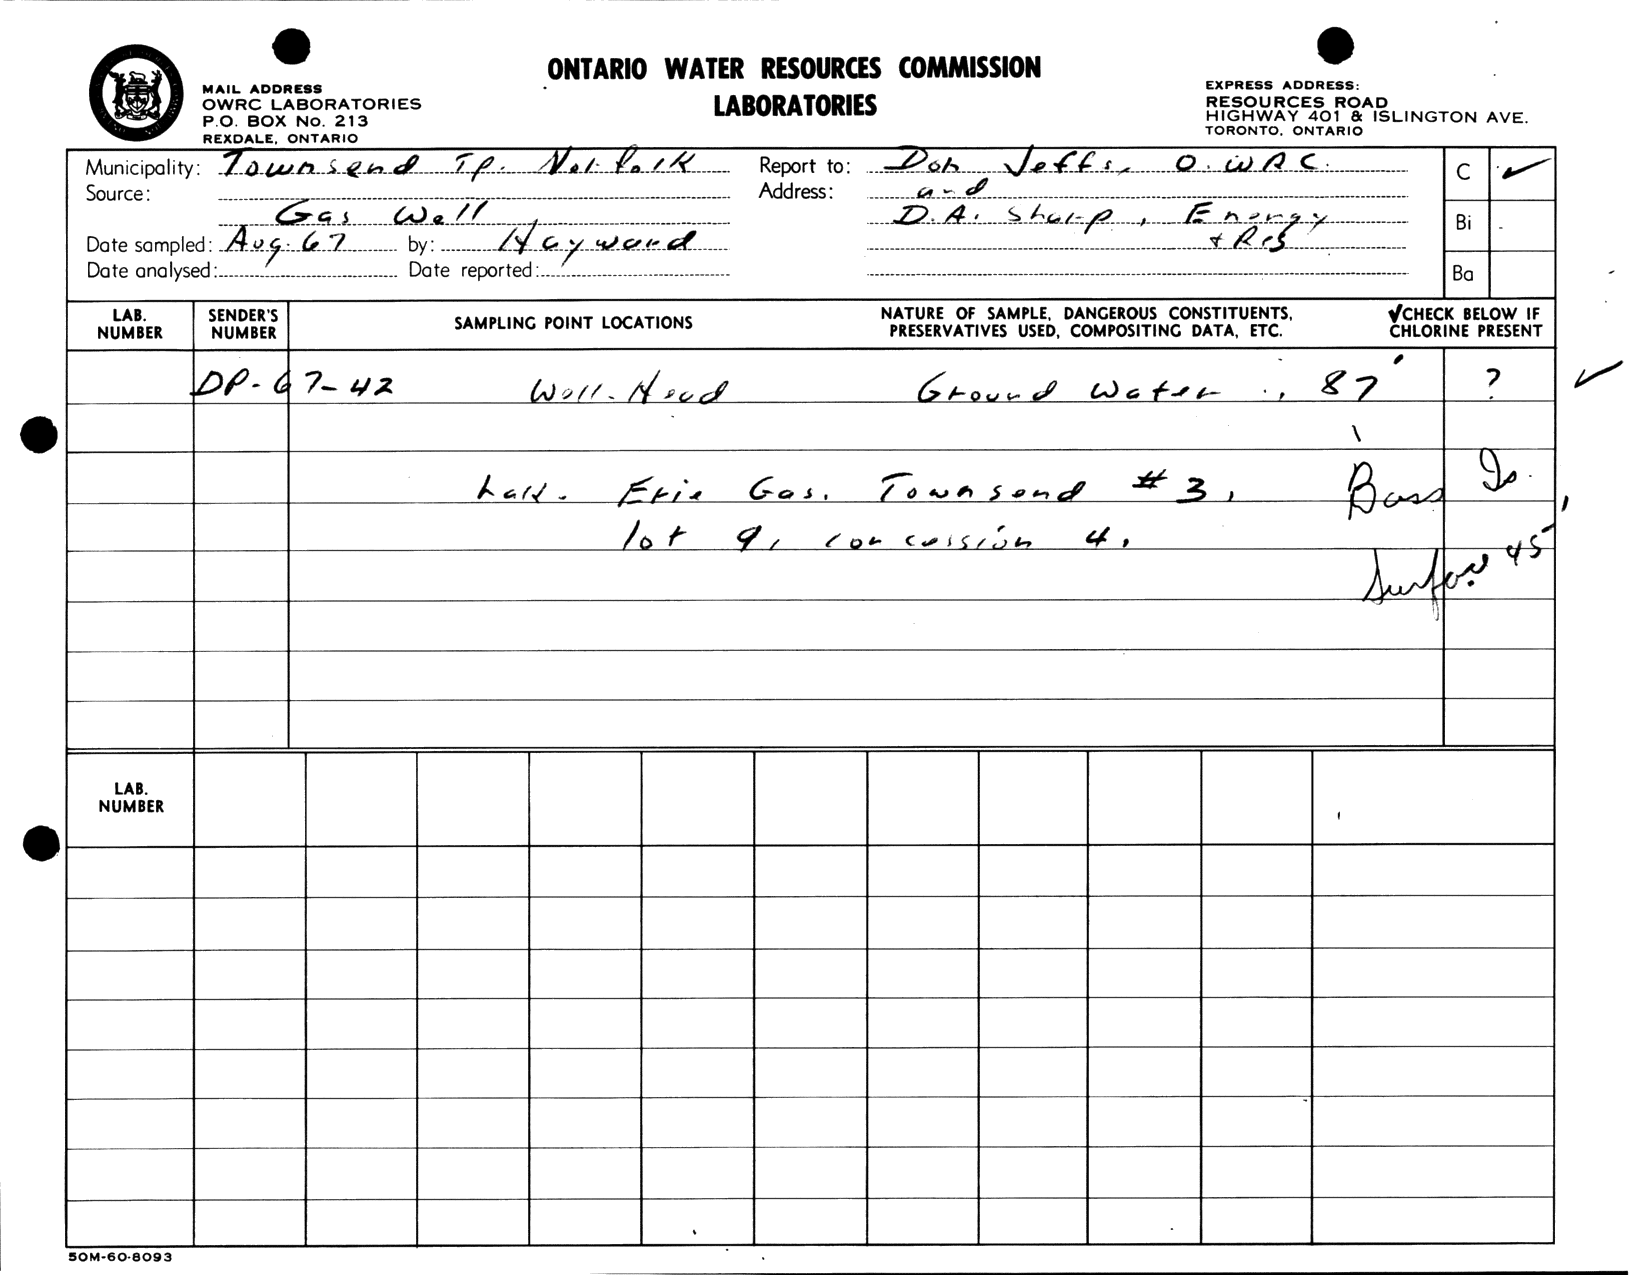 ONTARIO WATER RESOURCES COMMISSION
LABORATORIES
MAIL ADDRESS
OWRC LABORATORIES
P.O. BOX No. 213
REXDALE, ONTARIO
EXPRESS ADDRESS:
RESOURCES ROAD
HIGHWAY 401 & ISLINGTON AVE.
TORONTO, ONTARIO
Municipality: Townsend Tp. Norfolk
Source:
Gas Well
Date sampled: Aug. 67 by: Hayward
Date analysed: Date reported:
Report to: Don Jeffs, O.W.R.C.
Address: and
D.A. Sharp, Energy
+ Res
C ✓
Bi
Ba
LAB. NUMBER
SENDER'S NUMBER
SAMPLING POINT LOCATIONS
NATURE OF SAMPLE, DANGEROUS CONSTITUENTS,
PRESERVATIVES USED, COMPOSITING DATA, ETC.
✓CHECK BELOW IF
CHLORINE PRESENT
DP-67-42 Well-Head Ground Water, 87' ? ✓
Erie Gas. Townsend #3, Bass Is.
lot 9, concession 4.
Surface 45'
LAB.
NUMBER
50M-60-8093